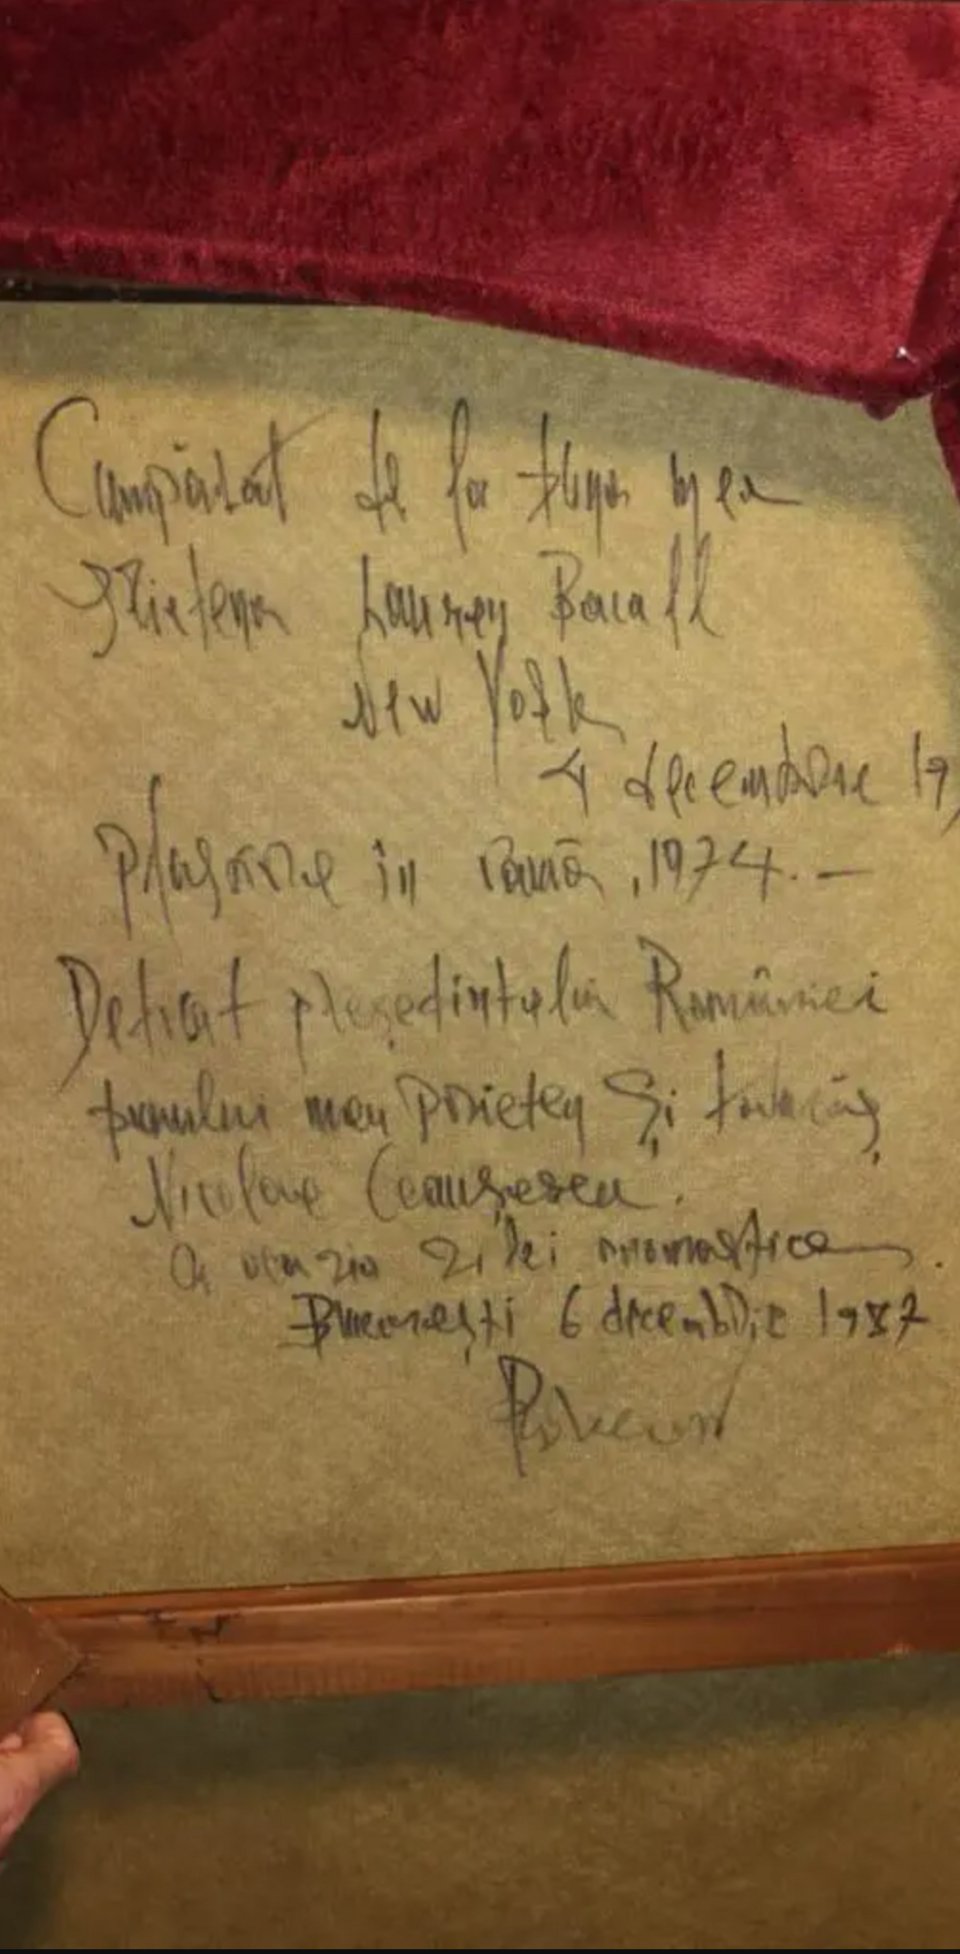 Cumpărat de la buna mea
prietena Lauren Bacall
New York
4 decembre 19
în ramă, 1974. —
Deticat preşedintelui României
bunului meu prieten şi
Nicolae Ceauşescu.
a ocazia zilei onomastice.
Bucureşti 6 decembrie 1987